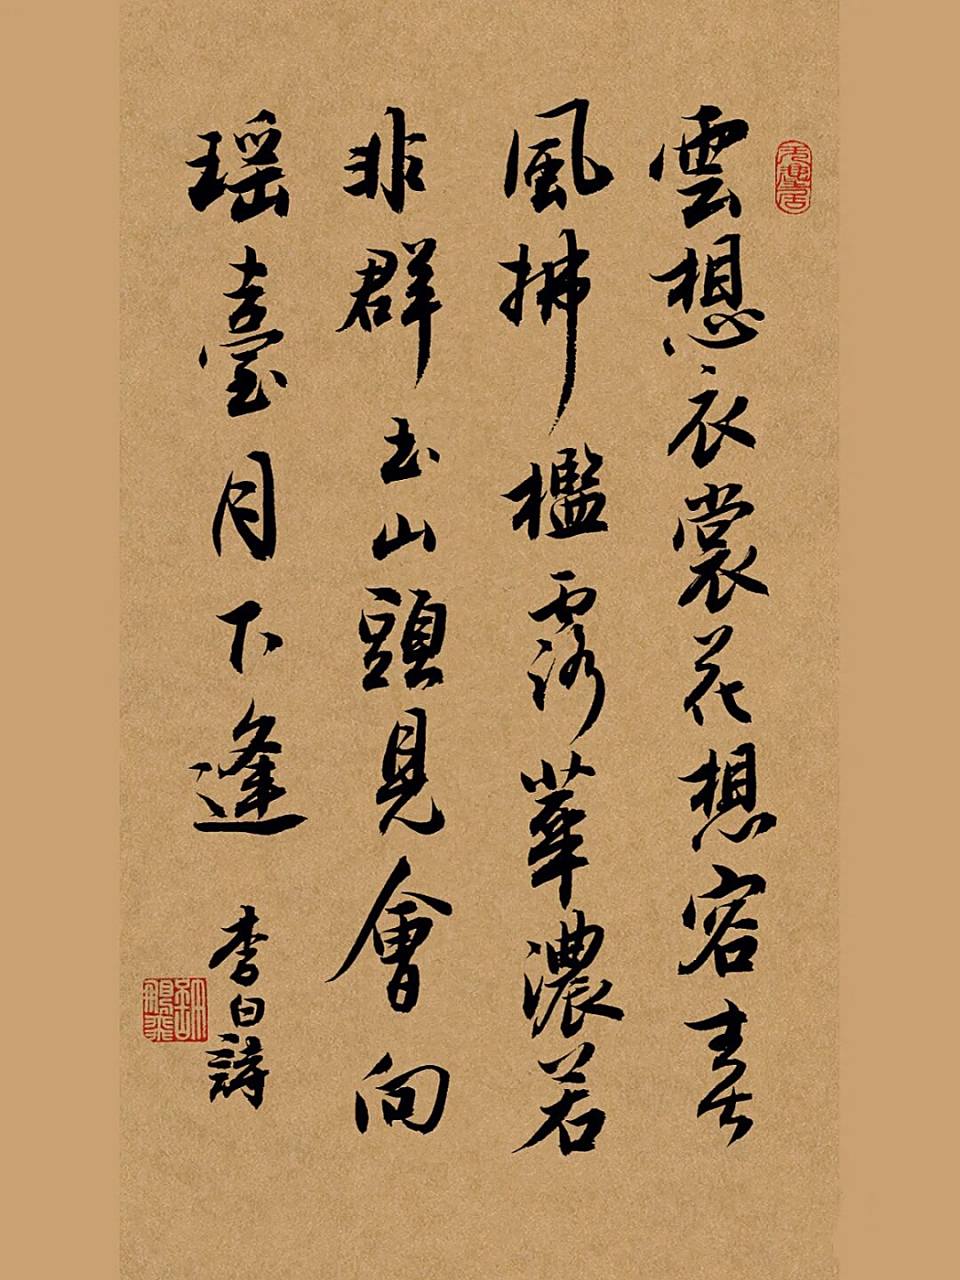 雲想衣裳花想容春
風拂檻露華濃若
非群玉山頭見會向
瑶臺月下逢
李白詩